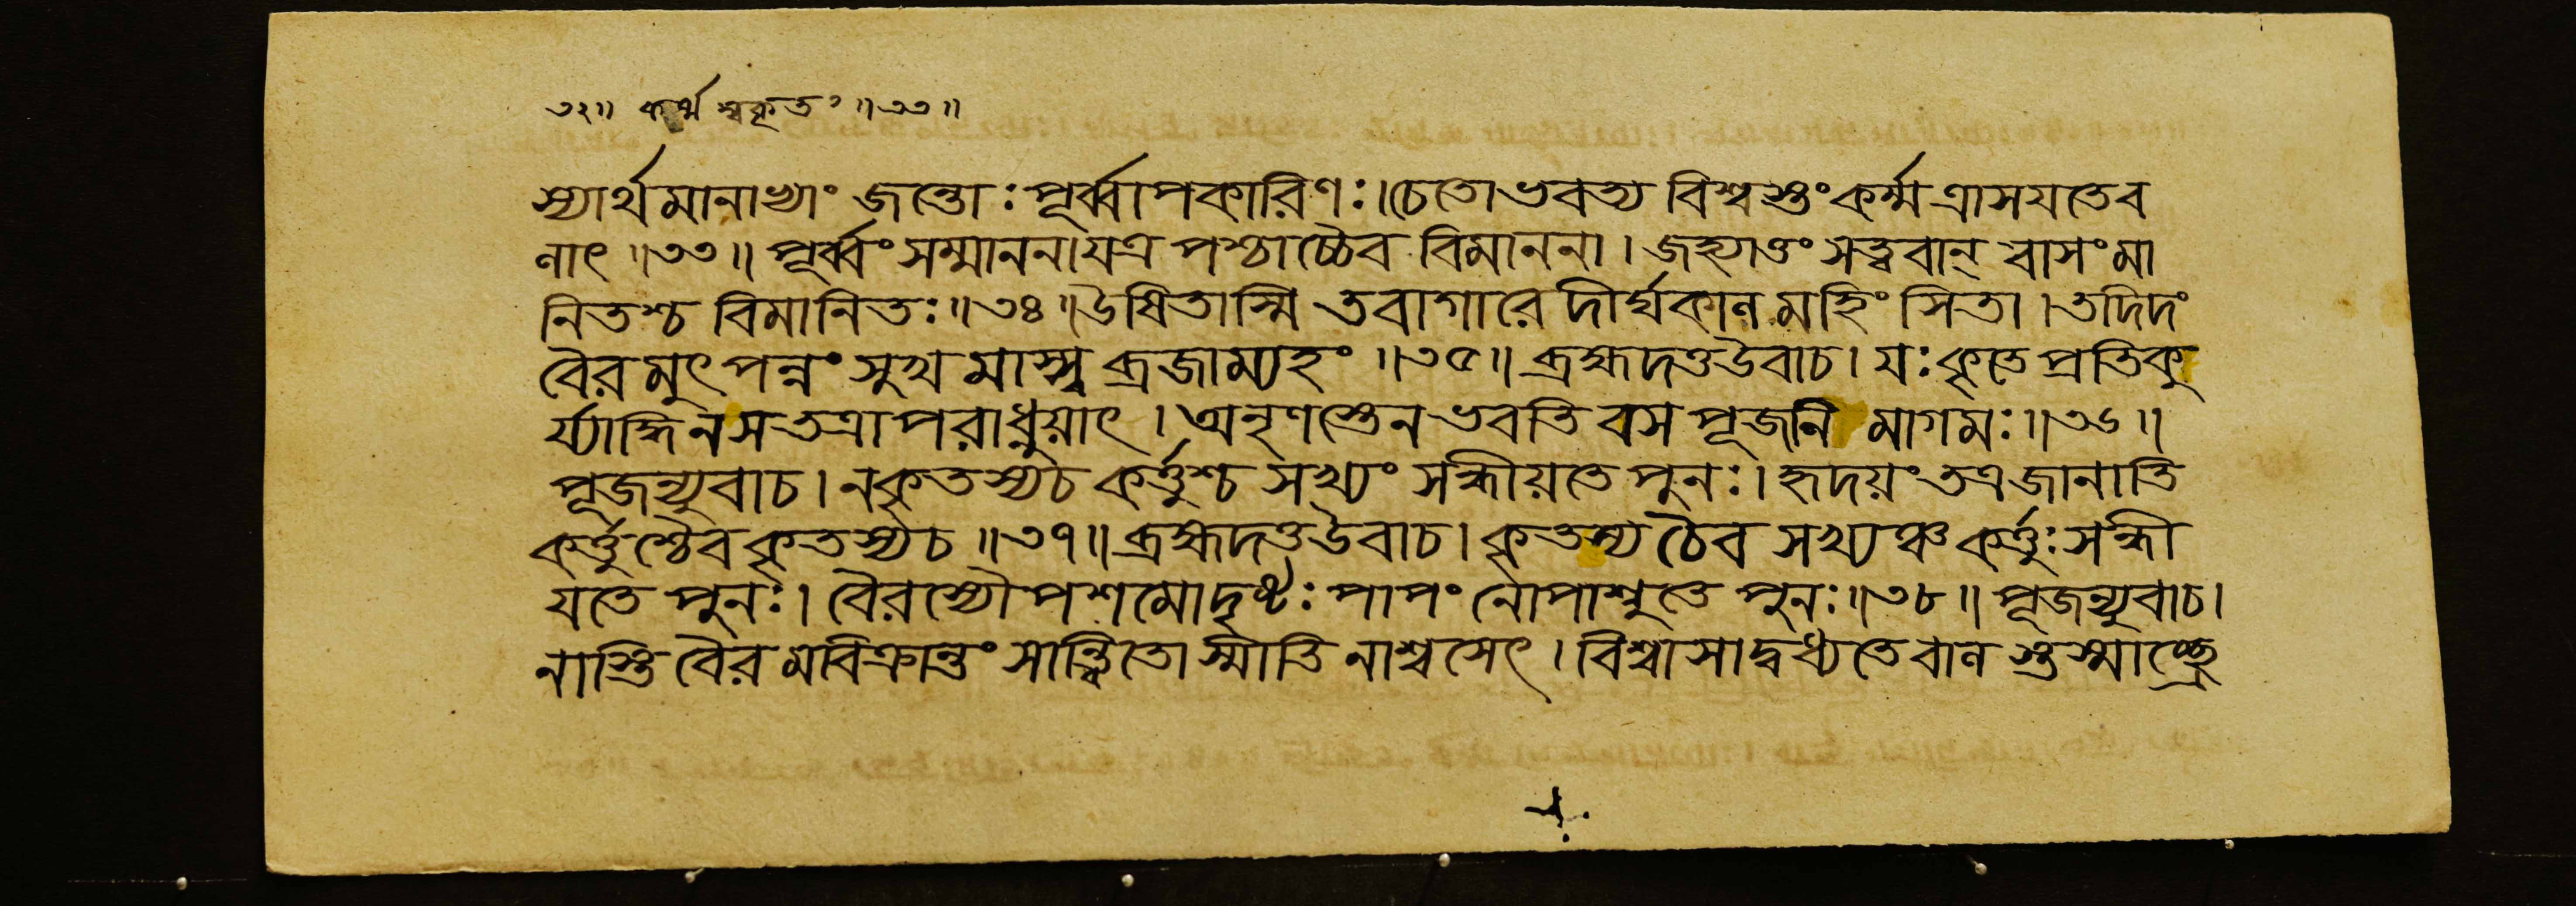 ৩২॥ কর্ম্ম স্বকৃত° ॥৩৩॥
স্যার্থমানাভ্যাং জন্তোঃপূর্ব্বাপকারিণঃ।চেতোভবত্য বিশ্বস্তংকর্ম্মত্রাসযতেব
ণাৎ ॥৩৩॥ পূর্ব্বংসম্মাননাযত্র পশ্চাচ্চৈব বিমাননা। জহ্যাত্তং সত্ত্ববান্ বাসংমা
নিতশ্চ বিমানিতঃ॥৩৪॥উষিতাস্মি তবাগারে দীর্ঘকালমহিংসিতা। তদিদং
বৈরমুৎপন্নং সুখমাস্স্ব ব্রজাম্যহং ॥৩৫॥ ব্রহ্মদত্তউবাচ। যঃকৃতে প্রতিকু
র্য্যাদ্ধিনসতত্রাপরাধ্নুয়াৎ। অনৃণস্তেনভবতি বস পূজনি মাগমঃ॥৩৬॥
পূজন্যুবাচ। নকৃতস্যচ কর্ত্তুশ্চ সখ্যং সন্ধীয়তে পুনঃ। হৃদয়ং তত্রজানাতি
কর্ত্তুশ্চৈব কৃতস্যচ ॥৩৭॥ ব্রহ্মদত্তউবাচ। কৃতস্য চৈব সখ্যঞ্চ কর্ত্তুঃসন্ধী
যতে পুনঃ। বৈরস্যোপশমোদৃষ্টঃ পাপং নোপাশ্নুতে পুনঃ॥৩৮॥ পূজন্যুবাচ।
নাস্তি বৈরমবিক্রান্তং সান্ত্বিতোস্মীতি নাশ্বসেৎ। বিশ্বাসাদ্বধ্যতে বাল স্তস্মাচ্ছ্রে